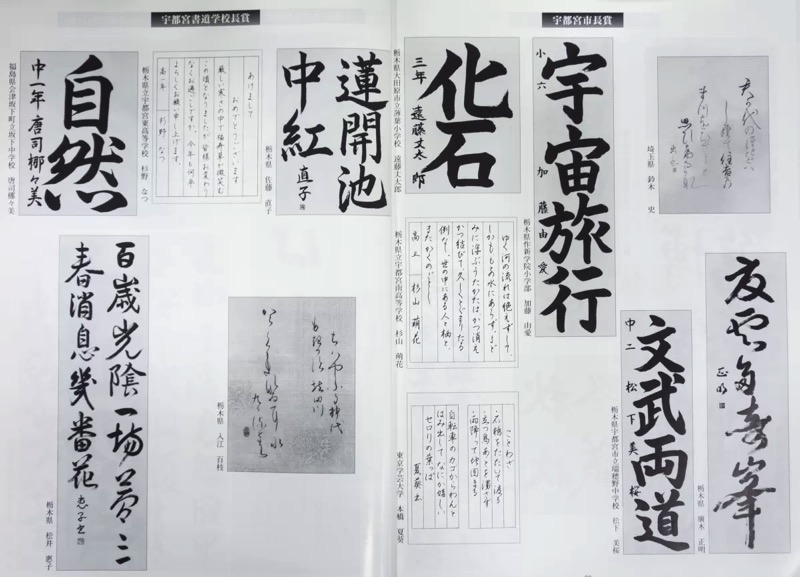 宇都宮市長賞
埼玉県 鈴木 史
宇宙旅行
小六 加藤由愛
栃木県作新学院小学部 加藤 由愛
化石
三年 遠藤丈太郎
栃木県大田原市立薄葉小学校 遠藤丈太郎
夏雲多奇峯
正明
栃木県 廣木 正明
文武両道
中二 松下美桜
栃木県宇都宮市立瑞穂野中学校 松下 美桜
ゆく河の流れは絶えずして、
しかももとの水にあらず。よど
みに浮ぶうたかたは、かつ消え
かつ結びて、久しくとどまりたる
例なし。世の中にある人と栖と、
またかくのごとし。
高二 杉山 萌花
栃木県立宇都宮南高等学校 杉山 萌花
ことわざ
石橋をたたいて渡る
立つ鳥あとを濁さず
雨降って地固まる
自転車のカゴからわんと
はみ出してなにか嬉しい
セロリの葉っぱ
夏葵書
東京学芸大学 本橋 夏葵
宇都宮書道学校長賞
蓮開池
中紅
直子
栃木県 佐藤 直子
あけまして
おめでとうございます
厳しい寒さの中で福寿草が微笑む
この頃となりましたが皆様お変わり
なくお過ごしですか。今年も何卒
よろしくお願い申し上げます。
高一年 杉野 なつ
栃木県立宇都宮東高等学校 杉野 なつ
自然
中一年 唐司梛々美
福島県会津坂下町立坂下中学校 唐司梛々美
ちはやふる神代
もきかす龍田川
からくれなゐに水
くくるとは
栃木県 入江 百枝
百歳光陰一場夢三
春消息幾番花
恵子書
栃木県 松井 恵子